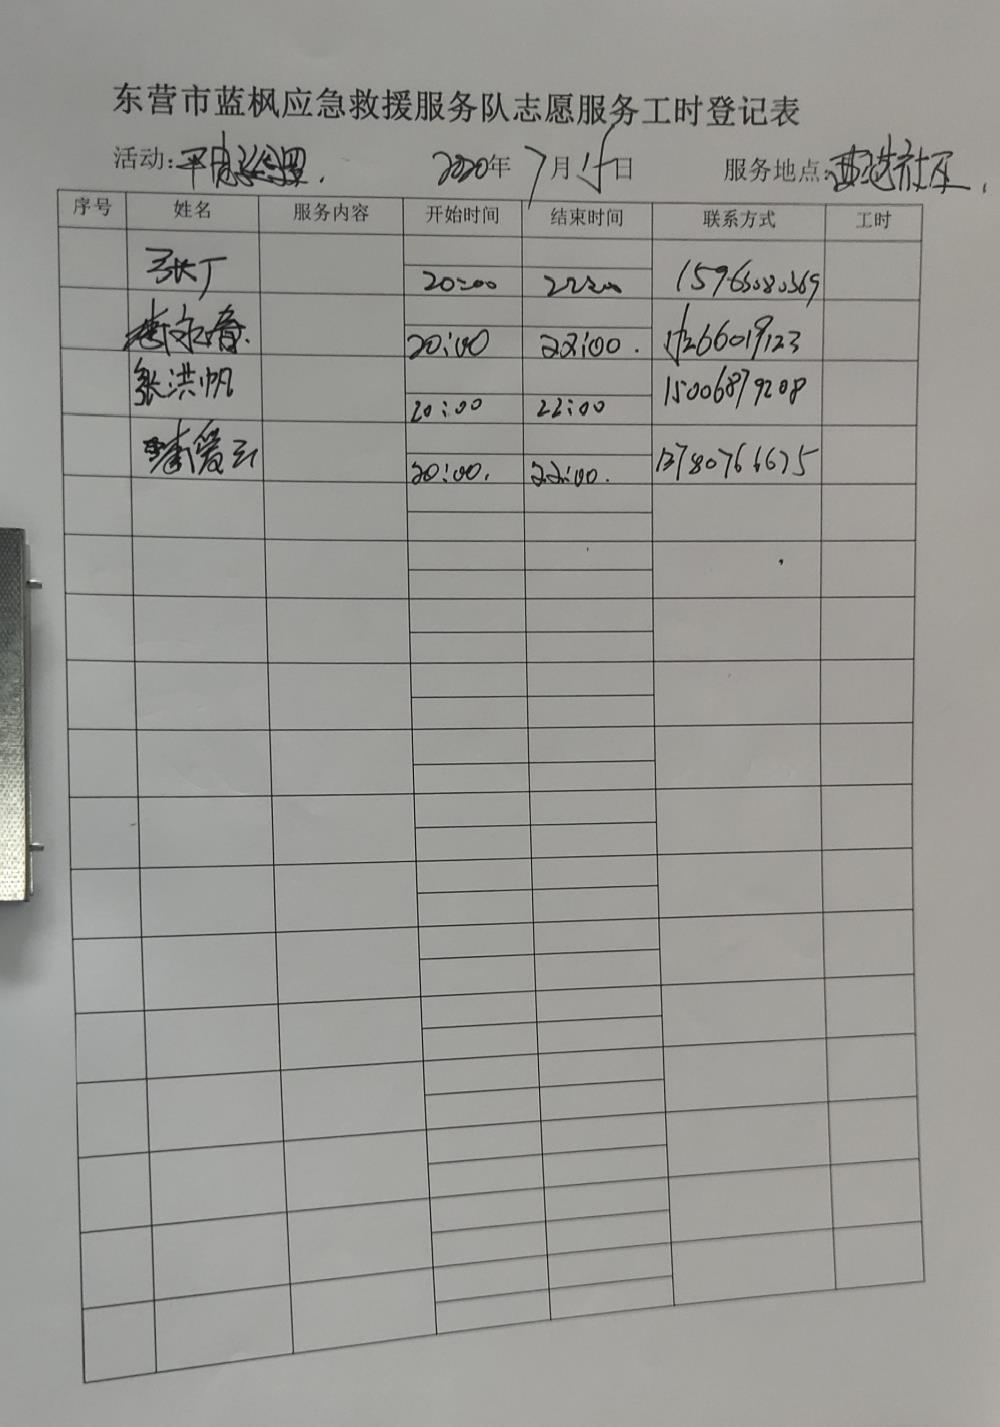 东营市蓝枫应急救援服务队志愿服务工时登记表
活动: 2020年7月15日 服务地点: 社区.
序号 姓名 服务内容 开始时间 结束时间 联系方式 工时
张丁 20:00 22:00 15963080369
20:00 22:00. 15266019123
张洪帆 20:00 22:00 15006879208
李爱云 20:00. 22:00. 13780766675